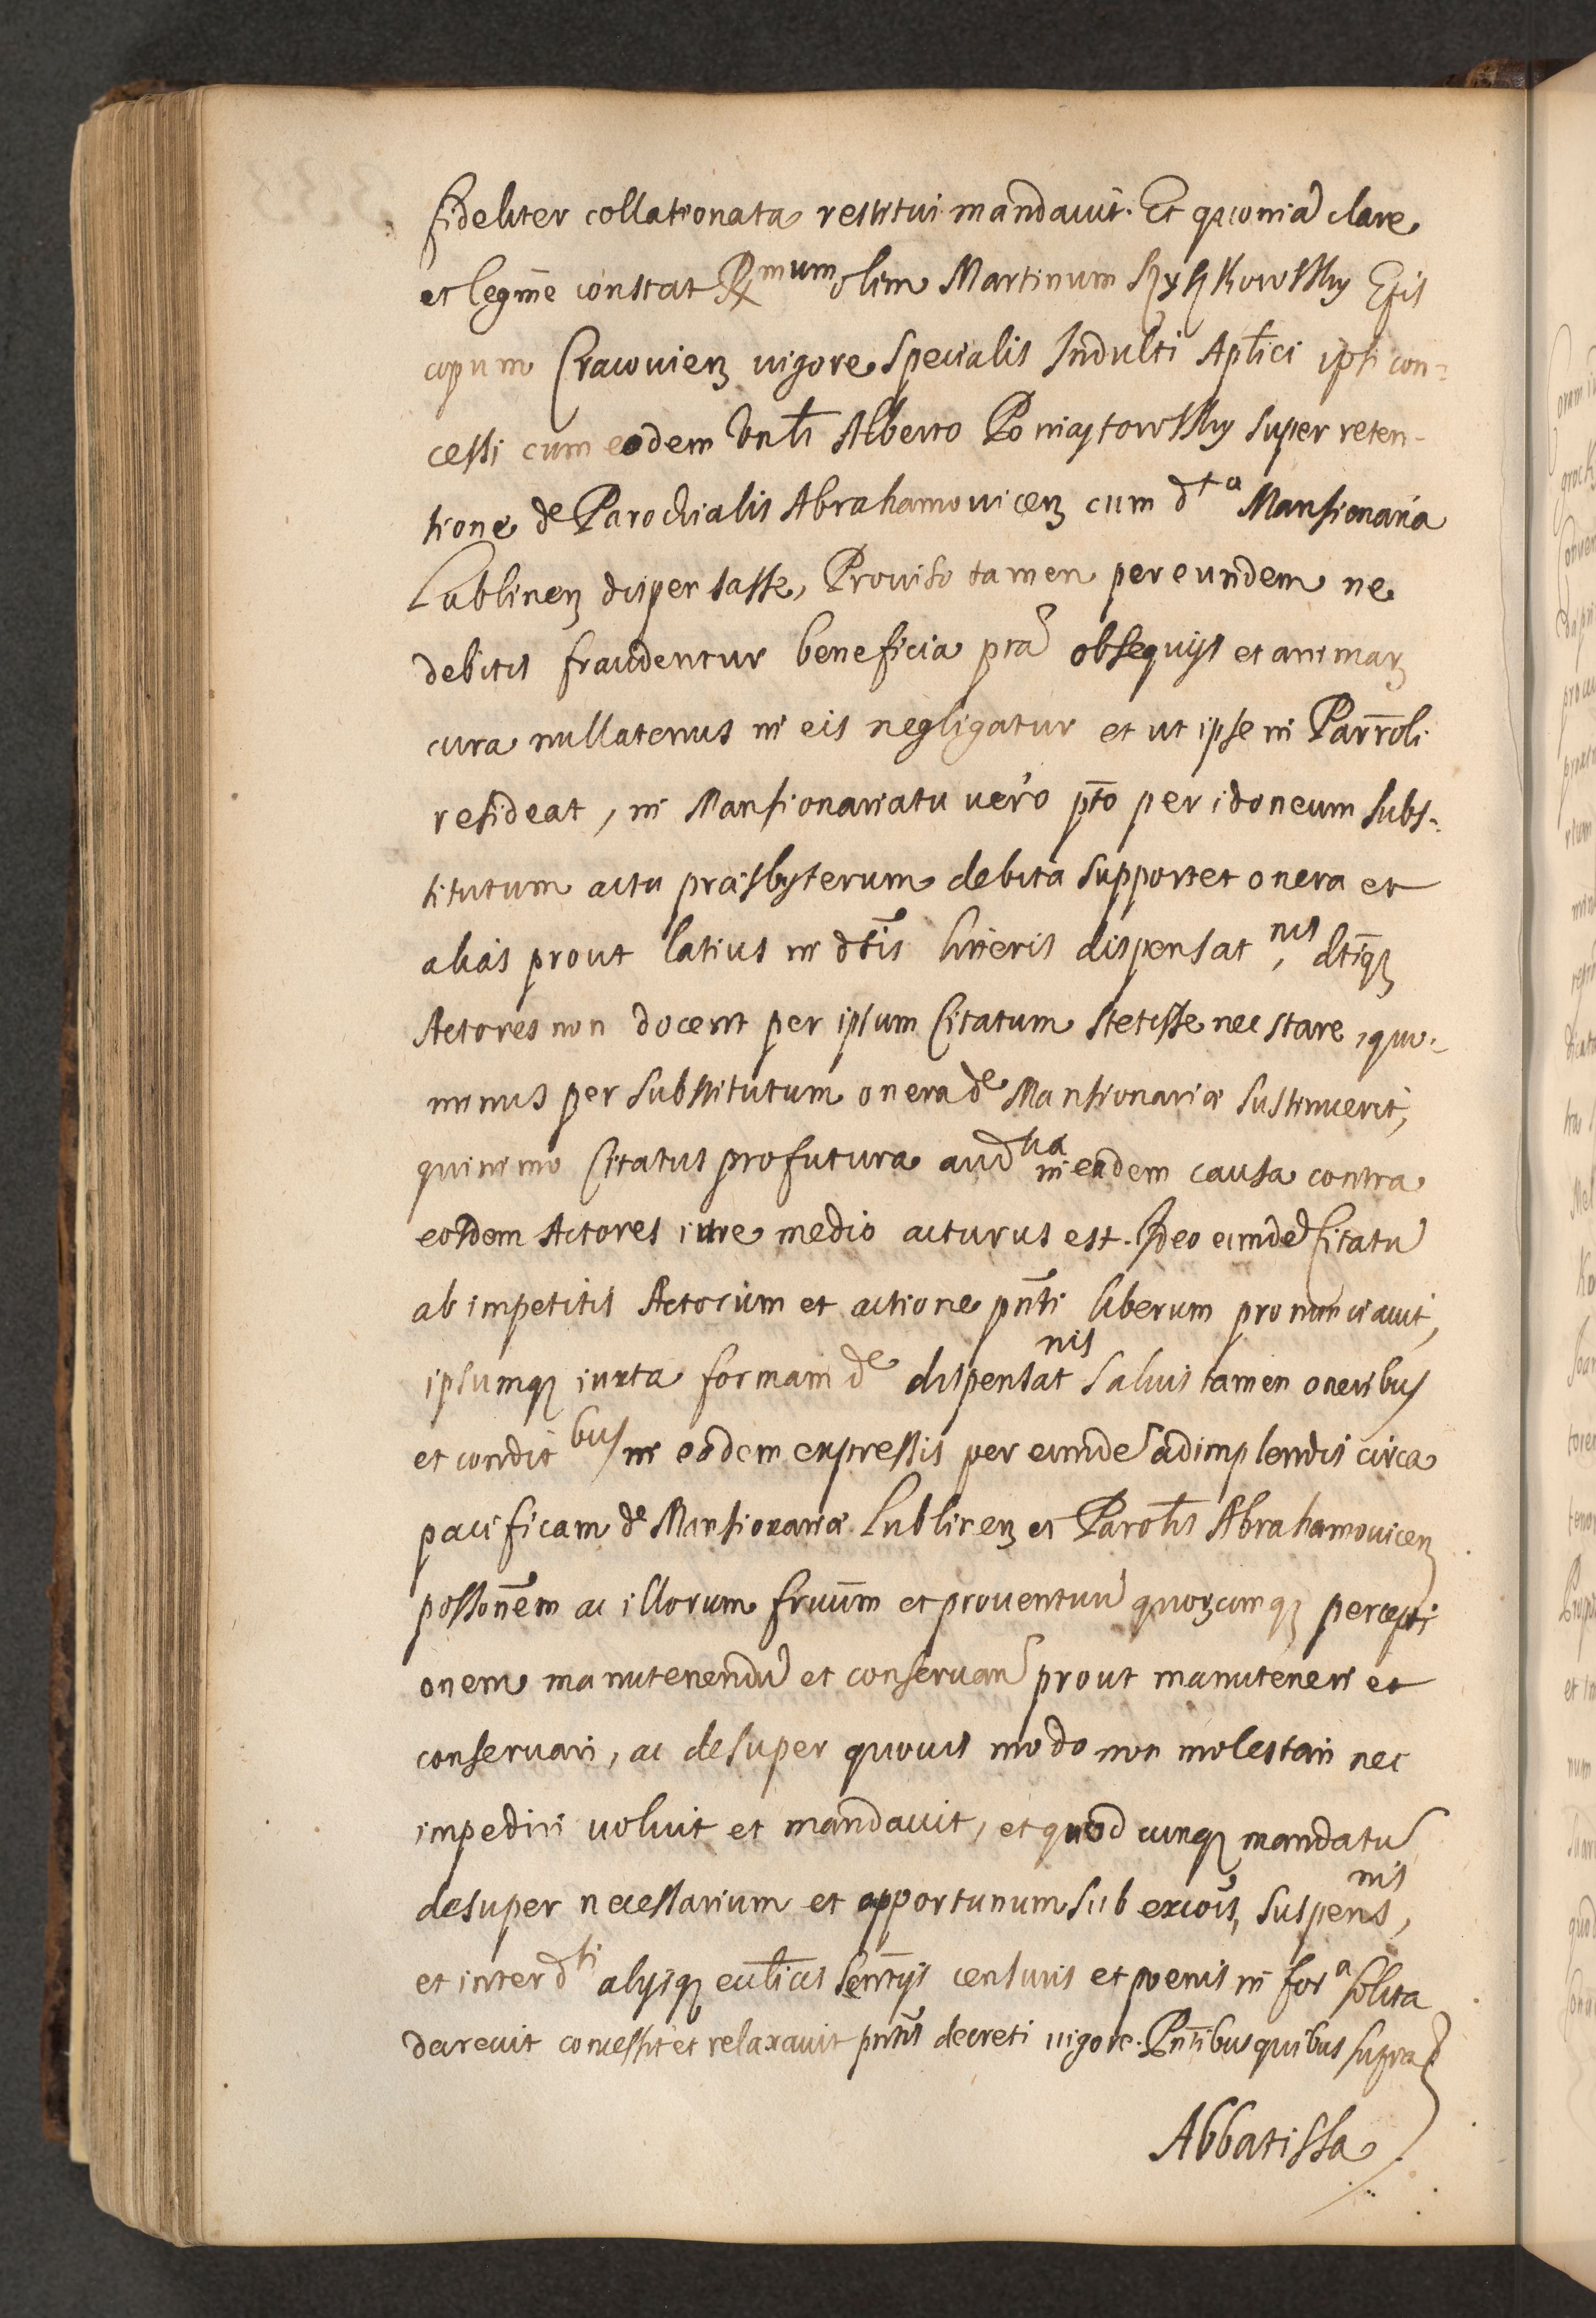 fideliter collationata restitui mandauit. Et quonia clare
et legitime constat Rmum olim Martinum Szyszkowsky Epis
copum Cracouien vigore specialis Indulti Aptici ipsi con=
cessi cum eodem Vnli Alberto Poniatowsky super reten-
tione de Parochialis Abrahamouicen cum dta Mansionaria
Lublinen dispensasse, Prouiso tamen per eundem ne
debitis fraudentur beneficia pra obsequijs et animarum
cura nullatenus in eis negligatur et ut ipse in Parroli
resideat, in Mansionariatu uero pto per idoneum subs=
titutum actu praesbyterum debita supportet onera et
alias prout latius in dtis litteris dispensatnis, dtiq
Actores non docent per ipsum Citatum stetisse nec stare, quo-
minus per substitutum onera de Mansionariae sustinuerit,
quinimo Citatus pro futura audtia in eadem causa contra
eosdem Actores iure medio acturus est. Ideo eunde Citatu
ab impetitis Actorum et actione pnti liberum pronunciauit,
ipsumq iuxta formam de dispensatnis saluis tamen oneribus
et conditbus in eadem expressis per eunde adimplendis circa
pacificam de Mansionariae Lublinen et Parolis Abrahamouicen
possonem ac illorum fruum et prouentuu quorumcumq percepti
onem manutenendu et conseruan prout manuteneri et
conseruari, ac desuper quouis modo non molestari nec
impediri uoluit et mandauit, et quodcunq mandatu
desuper necessarium et opportunum sub excois, suspensnis,
et interdti alijsq eccliticis sentijs censuris et poenis in fora solita
decreuit concessit et relaxauit pntis decreti uigore. Pntibus quibus supra
Abbatissa